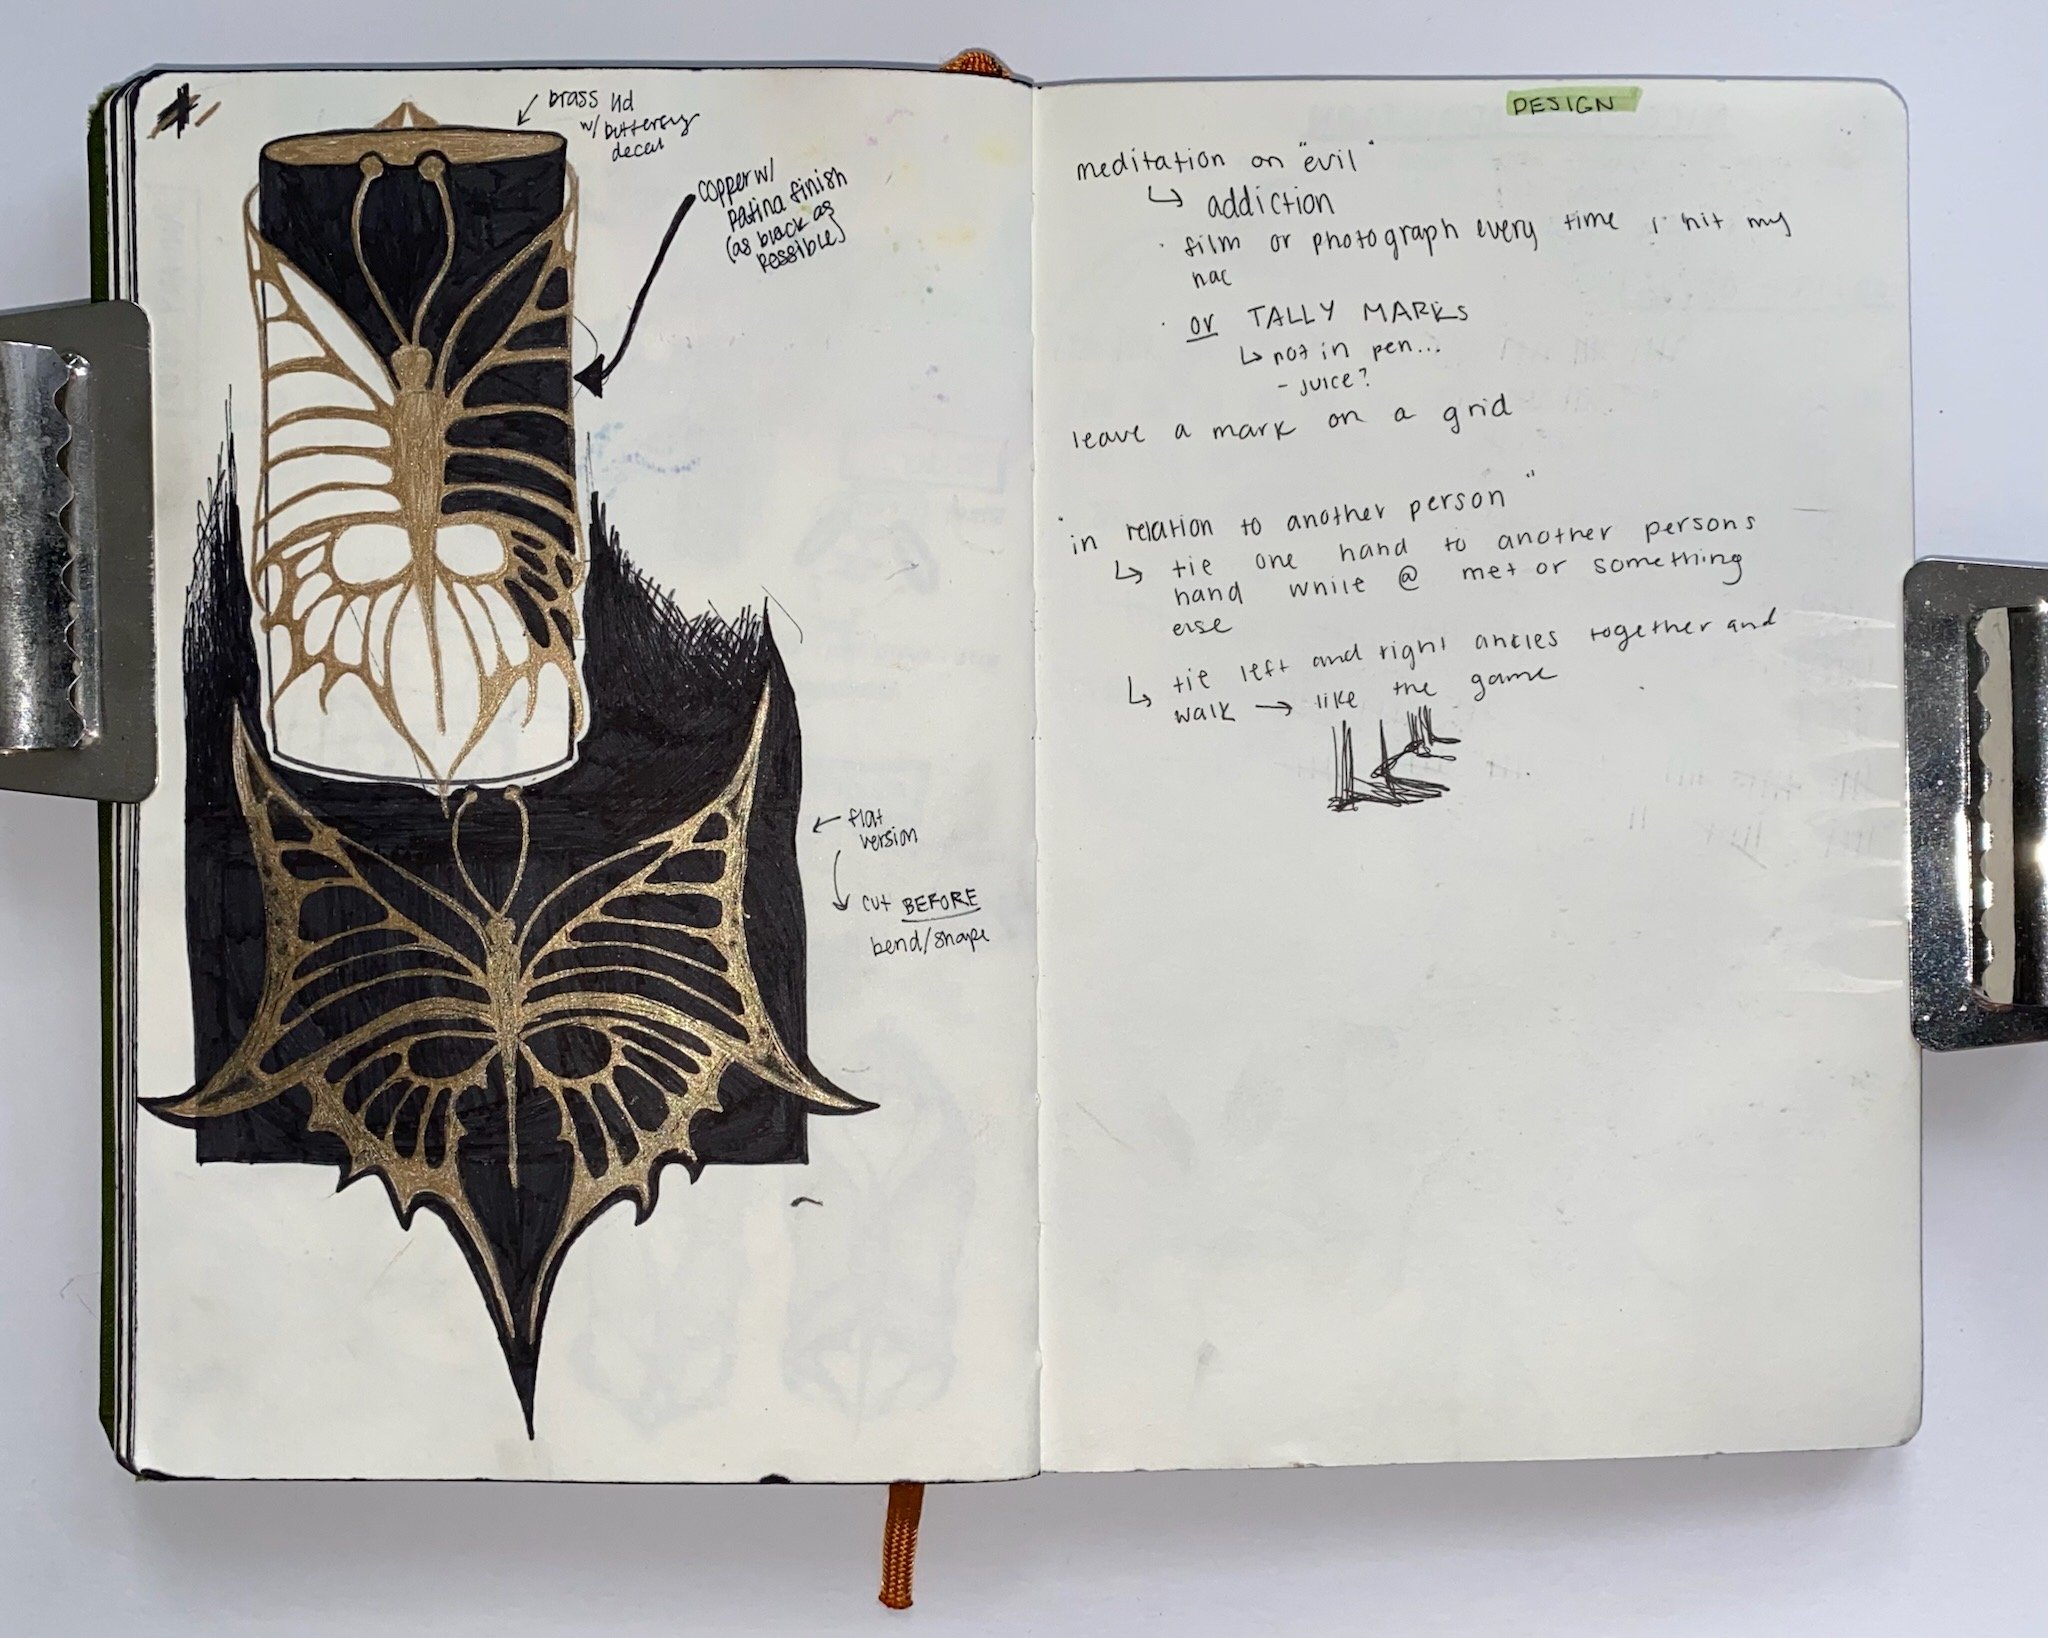 brass lid
w/ butterfly
decal
copper w/
patina finish
(as black as
possible)
flat
version
cut BEFORE
bend/shape
DESIGN
meditation on "evil"
↳ addiction
· film or photograph every time I hit my
nac
· or TALLY MARKS
↳ not in pen...
- juice?
leave a mark on a grid
"in relation to another person"
↳ tie one hand to another persons
hand while @ met or something
else
↳ tie left and right ankles together and
walk → like the game